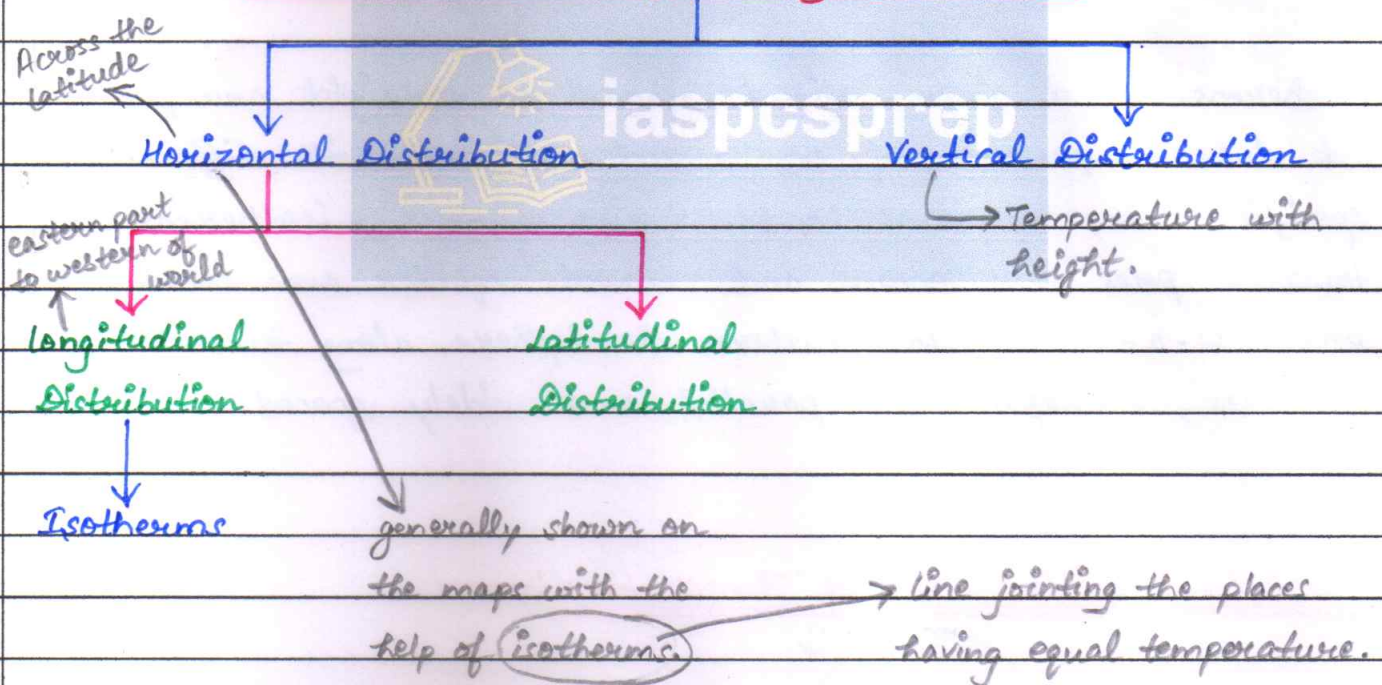 Across the
latitude
iaspcsprep
Horizontal Distribution
Vertical Distribution
→ Temperature with
height.
eastern part
to western of
world
Longitudinal
Distribution
Latitudinal
Distribution
Isotherms
generally shown on
the maps with the
help of isotherms.
→ line jointing the places
having equal temperature.